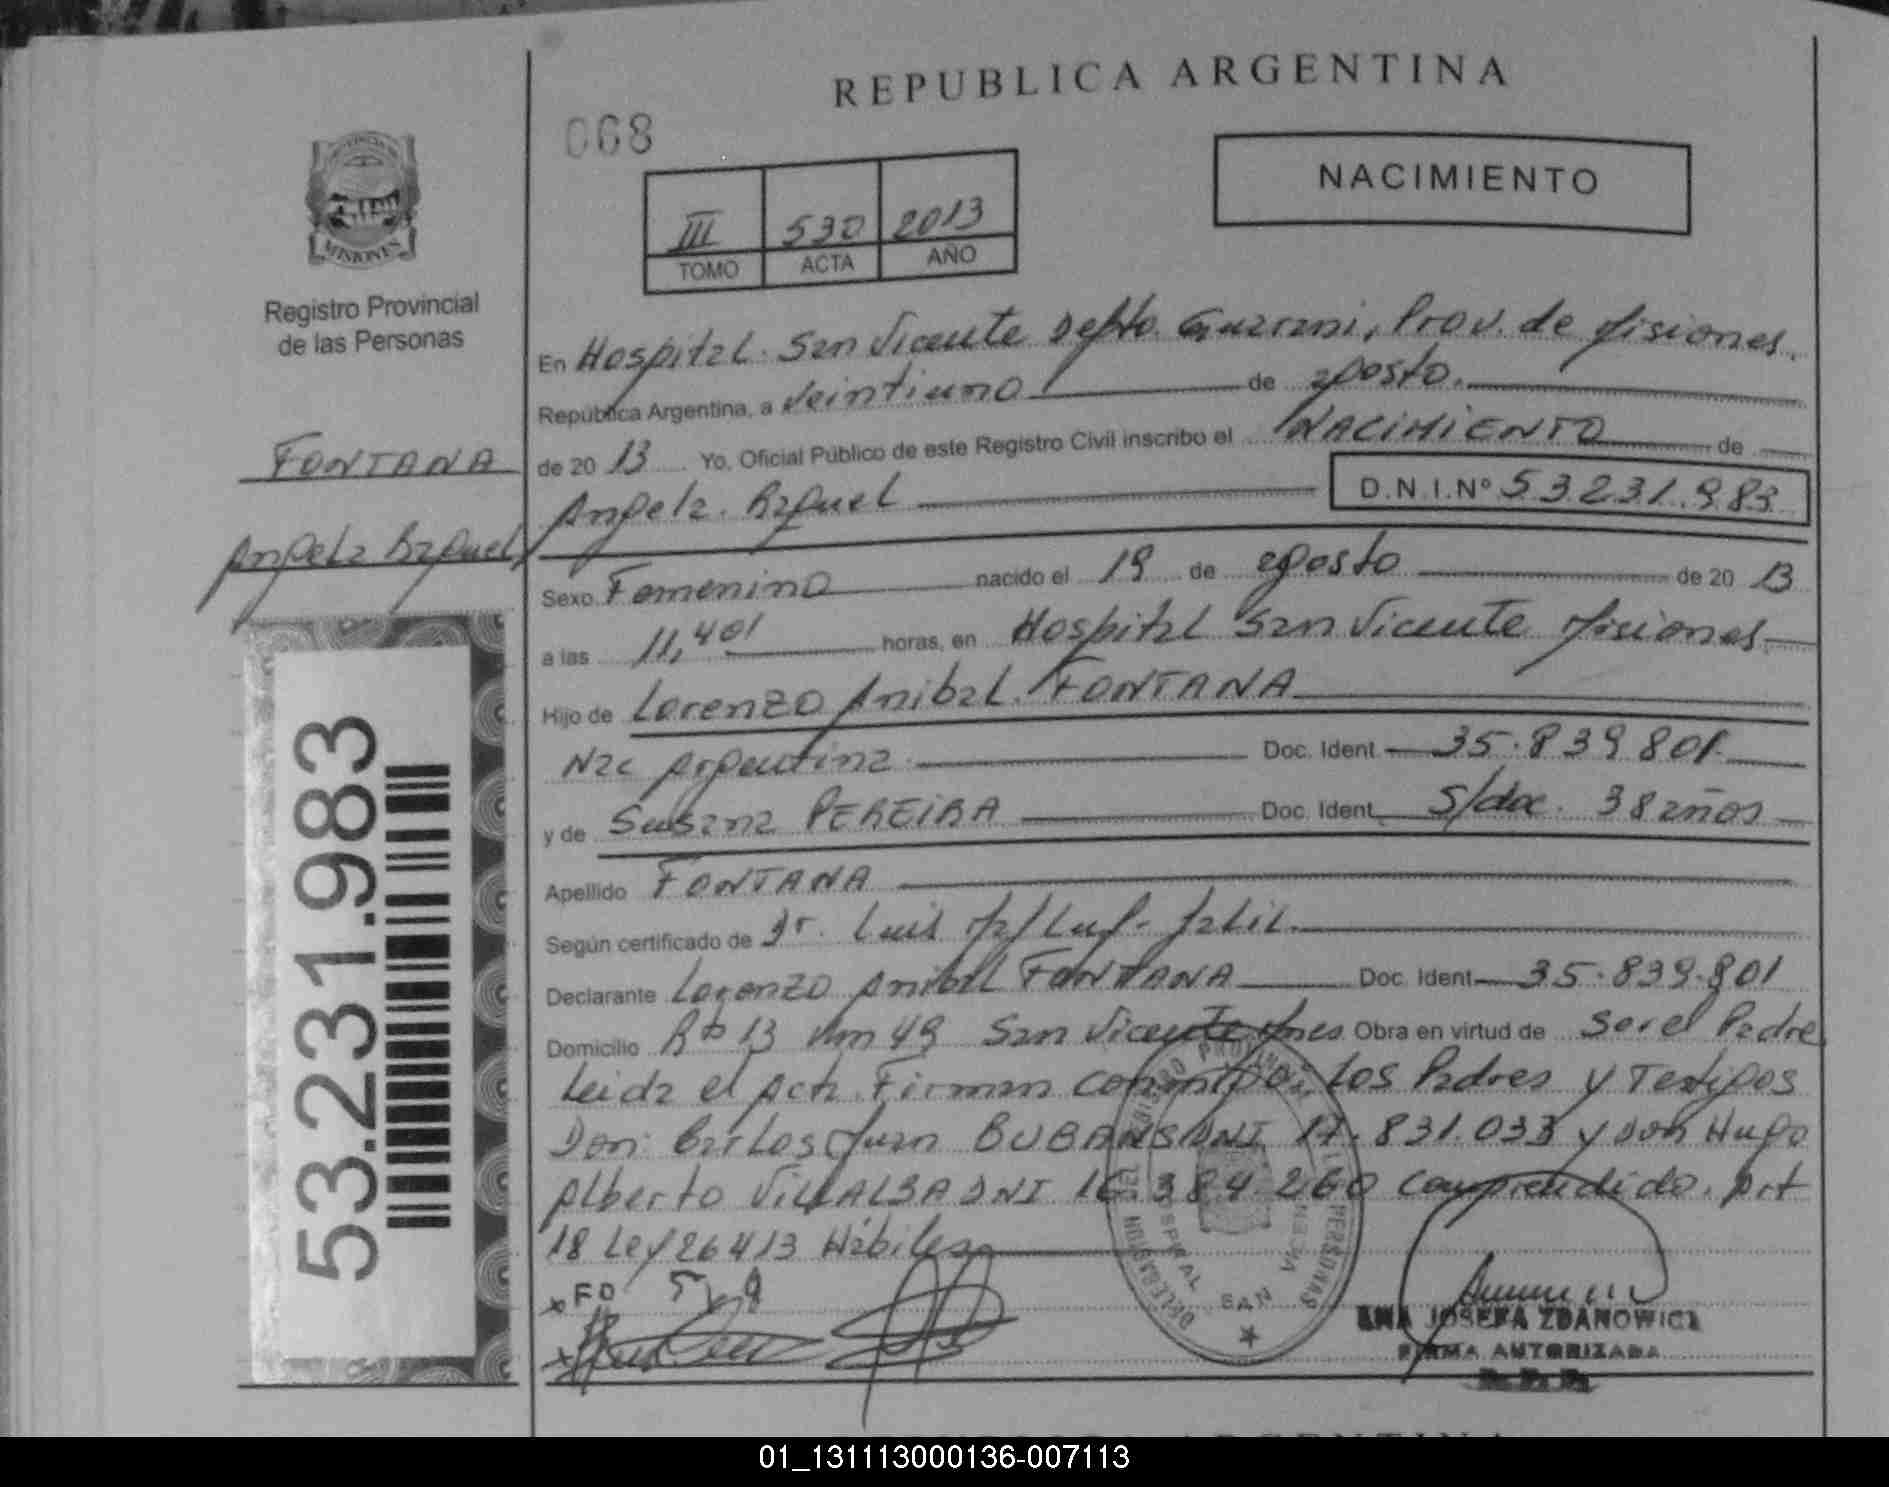 REPUBLICA ARGENTINA
068
NACIMIENTO
III 530 2013
TOMO ACTA AÑO
MISIONES
Registro Provincial
de las Personas
FONTANA
Angela Raquel
53.231.983
En Hospital San Vicente Depto. Guarani, Prov. de Misiones.
República Argentina, a veintiuno de agosto.
de 20 13 Yo, Oficial Público de este Registro Civil inscribo el NACIMIENTO de
Angela Raquel D.N.I.Nº 53231983
Sexo Femenino nacido el 19 de agosto de 20 13
a las 11,40 horas, en Hospital San Vicente Misiones
Hijo de Lorenzo Anibal FONTANA
Nac Argentina Doc. Ident 35.839.801
y de Susana PEREIRA Doc. Ident. S/doc. 38 años
Apellido FONTANA
Según certificado de Dr. Luis
Declarante Lorenzo Anibal FONTANA Doc. Ident 35.839.801
Domicilio Rta 13 km 49 San Vicente Mnes Obra en virtud de Ser el Padre
Leida el Acta Firman conmigo, Los Padres y Testigos
Don: Carlos Juan DNI 17.831.033 y Don Hugo
Alberto VILLALBA DNI 16.384.260 Comprendido. Art
18 Ley 26413 Hábiles
REGISTRO PROVINCIAL DE LAS PERSONAS
DELEGACION HOSPITAL SAN
ANA JOSEFA ZDANOWICZ
FIRMA AUTORIZADA
R. P. P.
REPUBLICA ARGENTINA
01_131113000136-007113